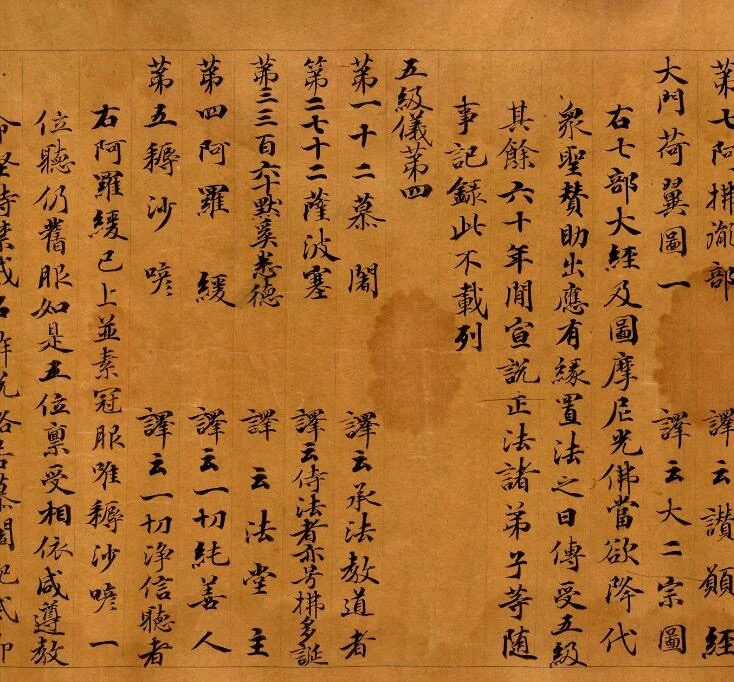 第七阿拂胤部 譯云讚願經
大門荷翼圖一 譯云大二宗圖
右七部大經及圖摩尼光佛當欲降代
衆聖贊助出應有緣置法之日傳受五級
其餘六十年間宣說正法諸弟子等隨
事記録此不載列
五級儀第四
第一十二慕闍 譯云承法教道者
第二七十二薩波塞 譯云侍法者亦号拂多誕
第三三百六十默奚悉德 譯云法堂主
第四阿羅緩 譯云一切純善人
第五耨沙喭 譯云一切净信聽者
右阿羅緩已上並素冠服唯耨沙喭一
位聽仍舊服如是五位禀受相依咸遵教
命堅持禁戒名解脫路若慕闍犯戒即